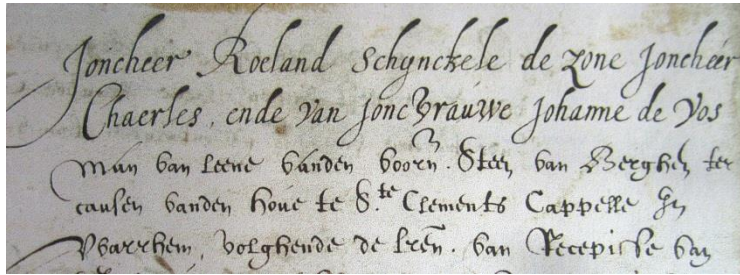 Joncheer Roeland Schynckele de zone Joncheer
Chaerles, ende van Joncvrauwe Johanne de Vos
Man van leene vanden voorn. Steen van Berghen ter
causen vanden hove te S.te Clements Cappelle In
Wbarrhem, volghende de lren. van Recepisse van